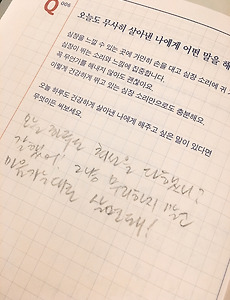 Q
006
오늘도 무사히 살아낸 나에게 어떤 말을 해
심장을 느낄 수 있는 곳에 가만히 손을 대고 심장 소리에 귀
심장이 뛰는 소리와 느낌에 집중합니다.
꼭 무언가를 해내지 않아도 괜찮아요.
이렇게 건강하게 뛰고 있는 심장 소리만으로도 충분해요.
오늘 하루도 건강하게 살아낸 나에게 해주고 싶은 말이 있다면
무엇이든 써보세요.
오늘 하루도 최선을 다했니?
잘했어! 그냥 무리하지 말고
마음가는대로 살면돼!